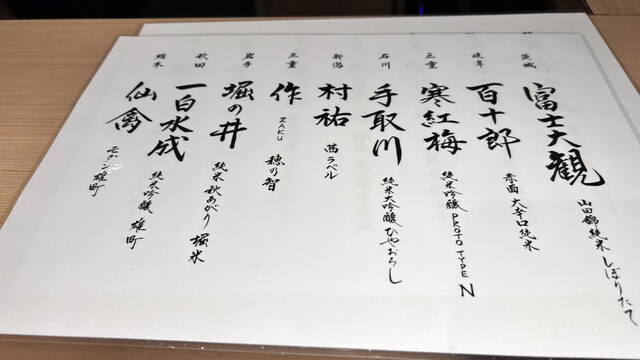 茨城
富士大観
山田錦純米しぼりたて
岐阜
百十郎
赤面 大辛口純米
三重
寒紅梅
純米吟醸 PROTO TYPE N
石川
手取川
純米大吟醸ひやおろし
新潟
村祐
茜ラベル
三重
作
ZAKU
穂乃智
岩手
堀の井
純米 秋あがり 堀米
秋田
一白水成
純米吟醸 雄町
栃木
仙禽
モダン雄町